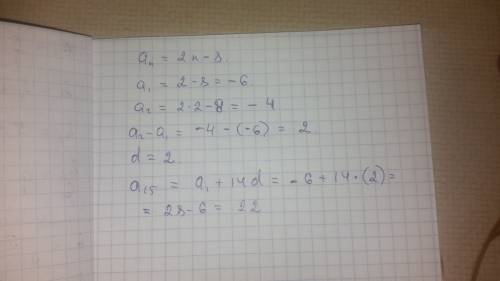 aₙ = 2n - 8.
a₁ = 2 - 8 = -6
a₂ = 2·2-8 = -4
a₂-a₁ = -4 - (-6) = 2
d = 2
a₁₅ = a₁ + 14d = -6 + 14·(2) =
= 28-6 = 22